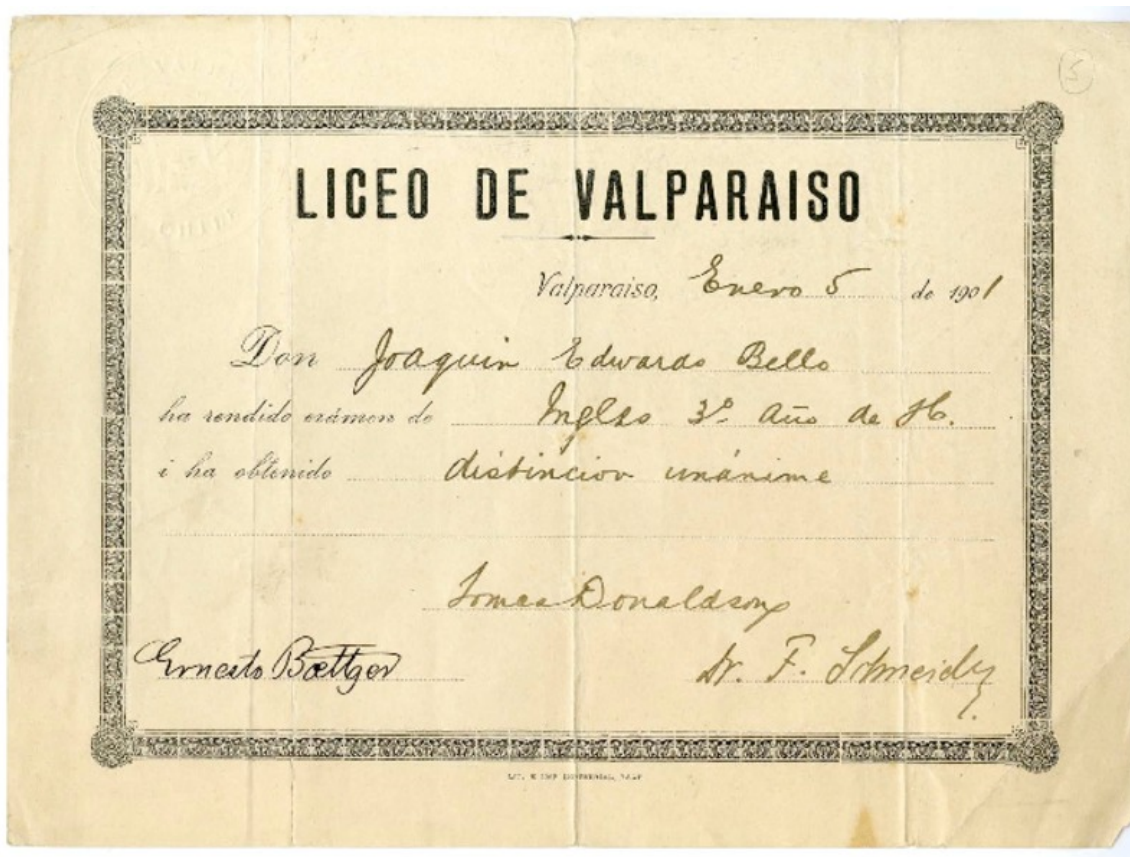 5
LICEO DE VALPARAISO
Valparaiso, Enero 5 de 1901
Don Joaquin Edwards Bello
ha rendido exámen de Ingles 3º Año de H.
i ha obtenido distincion unánime
Tomas Donaldson
Ernesto Bœttger
Dr. F. Schneider
LIT. E IMP. VALP